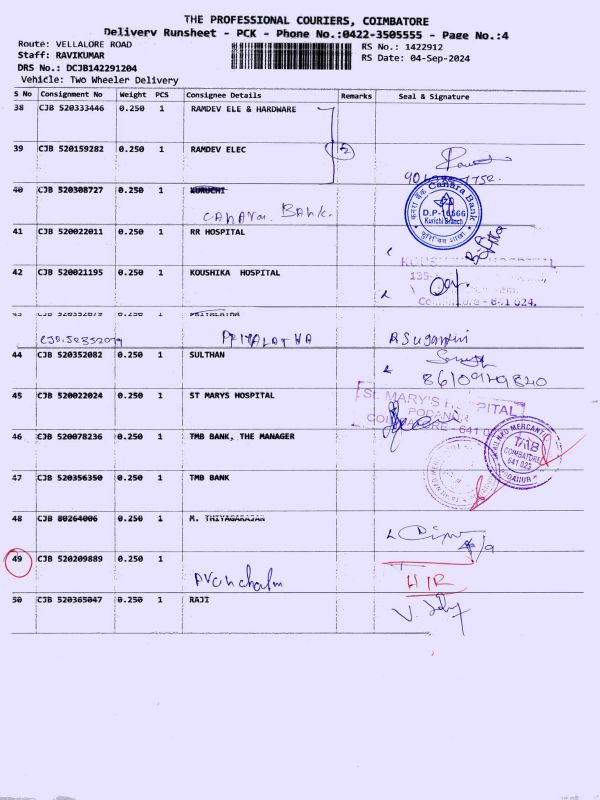 THE PROFESSIONAL COURIERS, COIMBATORE
Delivery Runsheet - PCK - Phone No.:0422-3505555 - Page No.:4
Route: VELLALORE ROAD RS No.: 1422912
Staff: RAVIKUMAR RS Date: 04-Sep-2024
DRS No.: DCJB142291204
Vehicle: Two Wheeler Delivery
S No Consignment No Weight PCS Consignee Details Remarks Seal & Signature
38 CJB 520333446 0.250 1 RAMDEV ELE & HARDWARE
39 CJB 520159282 0.250 1 RAMDEV ELEC 2
40 CJB 520308727 0.250 1 KURUCHI
CANARA BANK. Canara Bank D.P-16566 Kurichi Branch
41 CJB 520022011 0.250 1 RR HOSPITAL
42 CJB 520021195 0.250 1 KOUSHIKA HOSPITAL
HOSPITAL
Coimbatore - 641 024.
43 CJB 520352079 0.250 1 PRITALATHA
CJB.520352079 PRITALATHA R Sugantni
44 CJB 520352082 0.250 1 SULTHAN
8610929820
45 CJB 520022024 0.250 1 ST MARYS HOSPITAL
St. MARY'S HOSPITAL
PODANUR
COIMBATORE - 641 023
46 CJB 520078236 0.250 1 TMB BANK, THE MANAGER
TAMILNAD MERCANTILE TMB COIMBATORE 641 023 PODANUR
47 CJB 520356350 0.250 1 TMB BANK
48 CJB 80264006 0.250 1 M. THIYAGARAJAN
49 CJB 520209889 0.250 1
HIR
50 CJB 520365047 0.250 1 RAJI